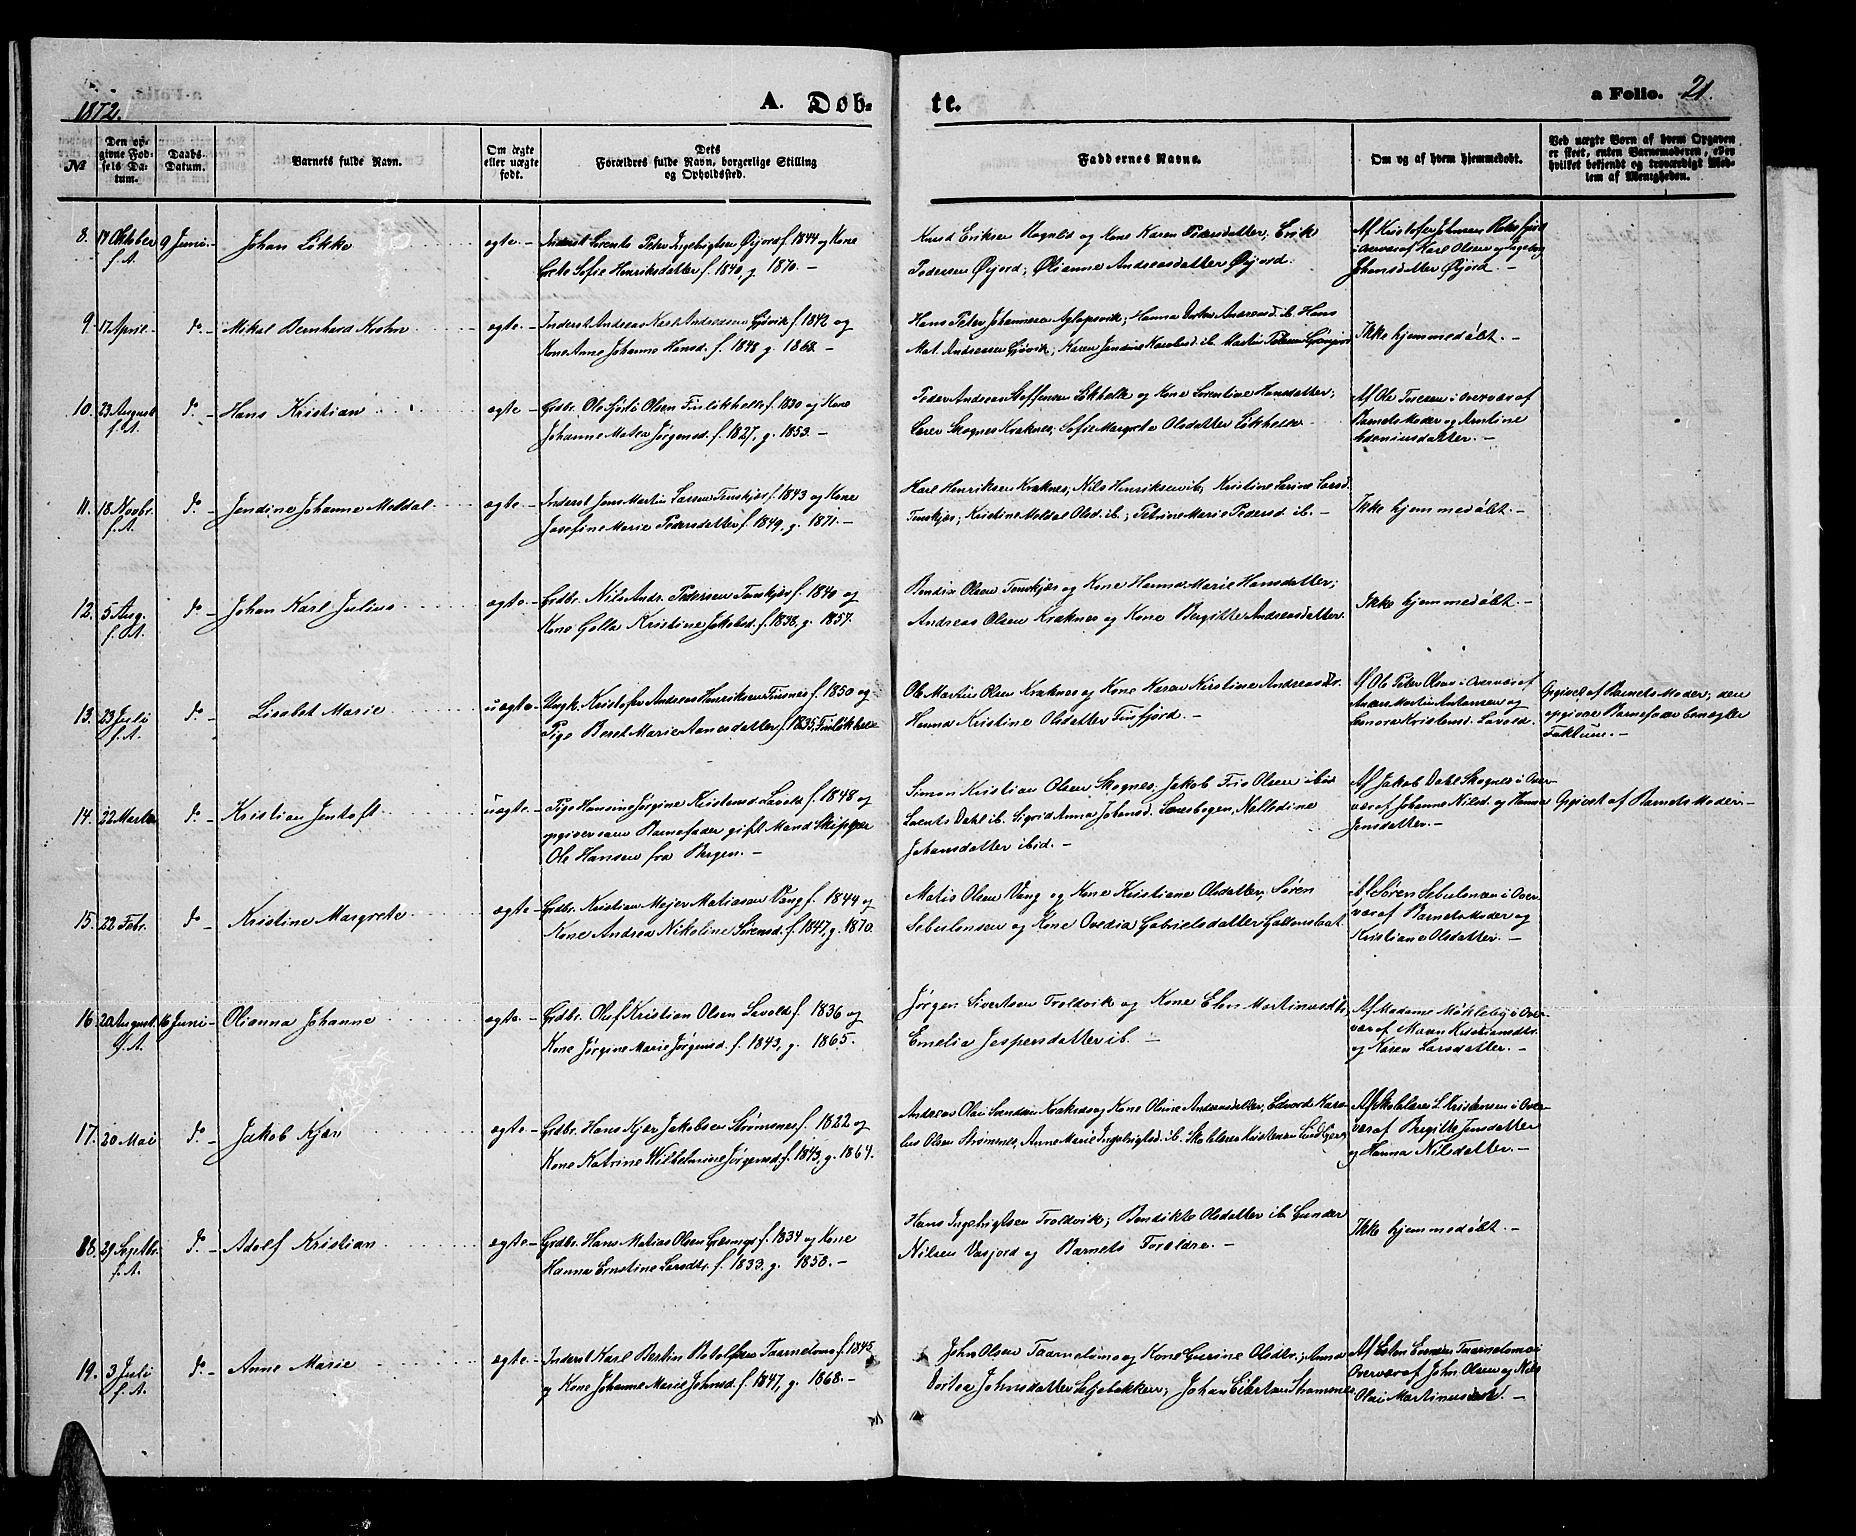 1872. A. Døb- te. a Folio. 21.
№
Den op-
givne Fød-
sels Da-
tum.
Daabs-
Datum.
Barnets fulde Navn.
Om ægte
eller uægte
født.
Dets
Forældres fulde Navn, borgerlige Stilling
og Opholdssted.
Faddernes Navne.
Om og af hvem hjemmedøbt.
Ved uægte Børn af hvem Opgaven
er skeet, enten Barnemoderen, eller
hvilket bekjendt og troværdigt Med-
lem af Menigheden.
8. 17 Oktober f.A. 9 Juni. Johan Løkke ægte
Inderst Lorents Peter Ingebrigtsen Øijord f. 1844 og Kone
Grete Sofie Henriksdatter f. 1840, g. 1870. –
Knud Eriksen Hognes og Kone Karen Pedersdatter; Erik
Pedersen Øijord; Olianne Andreasdatter Øijord.
Af Kristofer Johnsen
i Overvær af Karl Olsen og Ingeborg
Johansdatter Øijord. –
9. 17 April do Mikal Bernhard Krohn ægte
Inderst Andreas Karl Andreasen Gjøvik f. 1842 og
Kone Anne Johanna Hansd. f. 1848 g. 1868. –
Hans Peter Johannesen Aglapsvik; Hanna Andreasd. ib. Hans
Mat. Andreasen Gjøvik; Karen Jendine ib. Martin
Ikke hjemmedøbt. –
10. 23 August f.A. do Hans Kristian ægte
Grdbr. Ole Olsen Finlikhelle f. 1830 og Kone
Johanne Matea Jørgensd. f. 1827, g. 1853. –
Peder Andreas Steffensen Likhelle og Kone Lorentine Hansdatter;
Skognes Kraknes; Sofie Margrete Olsdatter Likhelle.
Af Ole i Overvær af
Barnets Moder og Arntine
datter. –
11. 18 Novbr. f.A. do Jendine Johanne Meldal ægte
Inderst Jens Martin Larsen Finskjær f. 1843 og Kone
Josefine Marie Pedersdatter f. 1849, g. 1871. –
Karl Henriksen Kraknes; Nils Henriksen ib; Kristine Larsd.
Finskjær; Kristine Meldal Olsd. ib.; Petrine Marie Pedersd. ib. –
Ikke hjemmedøbt. –
12. 5 Aug. f.A. do Johan Karl Julius ægte
Grdbr. Nils Andr. Pedersen Finskjær f. 1840 og
Kone Golla Kristine Jakobsd. f. 1838, g. 1857.
Bendix Olsen Finskjær og Kone Hanna Marie Hansdatter;
Andreas Olsen Kraknes og Kone Bergitte Andreasdatter.
Ikke hjemmedøbt. –
13. 23 Juli f.A. do Lisabet Marie uægte
Ungk. Kristofer Andreas Henriksen Finsnes f. 1850 og
Pige Beret Marie datter f. 1835, Finlikhelle
Ole Martin Olsen Kraknes og Kone Karen Kirstine Andreasdtr.
Hanna Kristine Olsdatter Finfjord. –
Af Ole Peter Olsen i Overvær af
Anders Martin Antonsen og
Lenora Kristensd. Lavold.
Opgivet af Barnets Moder; den
opgivne Barnefader benægter
Faktum. –
14. 22 Marts do Kristian Jentoft uægte
Pige Hansine Jørgine Kristensd. Lavold f. 1848 og
opgiver som Barnefader gift Mand Skipper
Ole Hansen fra Bergen. –
Simon Kristian Olsen Skognes, Jakob Friis Olsen ibid
Lorents Dahl ib. Sigrid Anna Johansd. Nellidine
Johansdatter ibid. –
Af Jakob Dahl Skognes i Over-
vær af Johanna Nilsd. og Hansa
Jensdatter. –
Opgivet af Barnets Moder. –
15. 22 Febr. do Kristine Margrete ægte
Grdbr. Kristian Mejer Matiasen Vang f. 1844 og
Kone Andrea Nikoline Sørensd. f. 1847, g. 1870.
Matis Olsen Vang og Kone Kristiane Olsdatter, Søren
Sebulonsen og Kone Ovedia Gabrielsdatter
Af Søren Sebulonsen i Over-
vær af Barnets Moder og
Kristiane Olsdatter. –
16. 20 August f.A. 16 Juni Olianna Johanne ægte
Grdbr. Oluf Kristian Olsen Lavold f. 1836 og
Kone Jørgine Marie Jørgensd. f. 1843, g. 1865.
Jørgen Sivertsen Troldvik og Kone Elen Martinusdtr,
Emelia Jespersdatter ib. –
Af Madame Møkleby i Over-
vær af Maren Kristiansdtr.
og Karen Larsdatter. –
17. 20 Mai do Jakob Kjær ægte
Grdbr. Hans Kjær Jakobsen Strømsnes f. 1822 og
Kone Katrine Wilhelmine Jørgensd. f. 1843, g. 1864.
Andreas Olai Svendsen og Kone Oline Andreasdatter, Edvard Karo-
lius Olsen Strømsnes, Anne Marie Ingebrigtsd. ib. Skolelærer Kristensen
Af Skolelærer L. Kristensen i Over-
vær af Bergitte Jensdatter
og Hanna Nilsdatter. –
18. 29 Septbr. f.A. do Adolf Kristian ægte
Grdbr. Hans Matias Olsen Græsmyr f. 1834 og Kone
Hanna Ernstine Larsdtr. f. 1833, g. 1858. –
Hans Ingebrigtsen Troldvik; Bendikte Olsdatter ib. Gunder
Nilsen Vasjord og Barnets Forældre. –
Ikke hjemmedøbt. –
19. 3 Juli f.A. do Anne Marie ægte
Inderst Karl Bertin f. 1845
og Kone Johanne Marie Johnsd. f. 1847, g. 1868. –
John Olsen og Kone Gurine Olsdtr.; Anna
Dortea Johnsdatter; Johan Eilertsen Strømsnes
Af i
Overvær af John Olsen og Nils
Olai Martinus